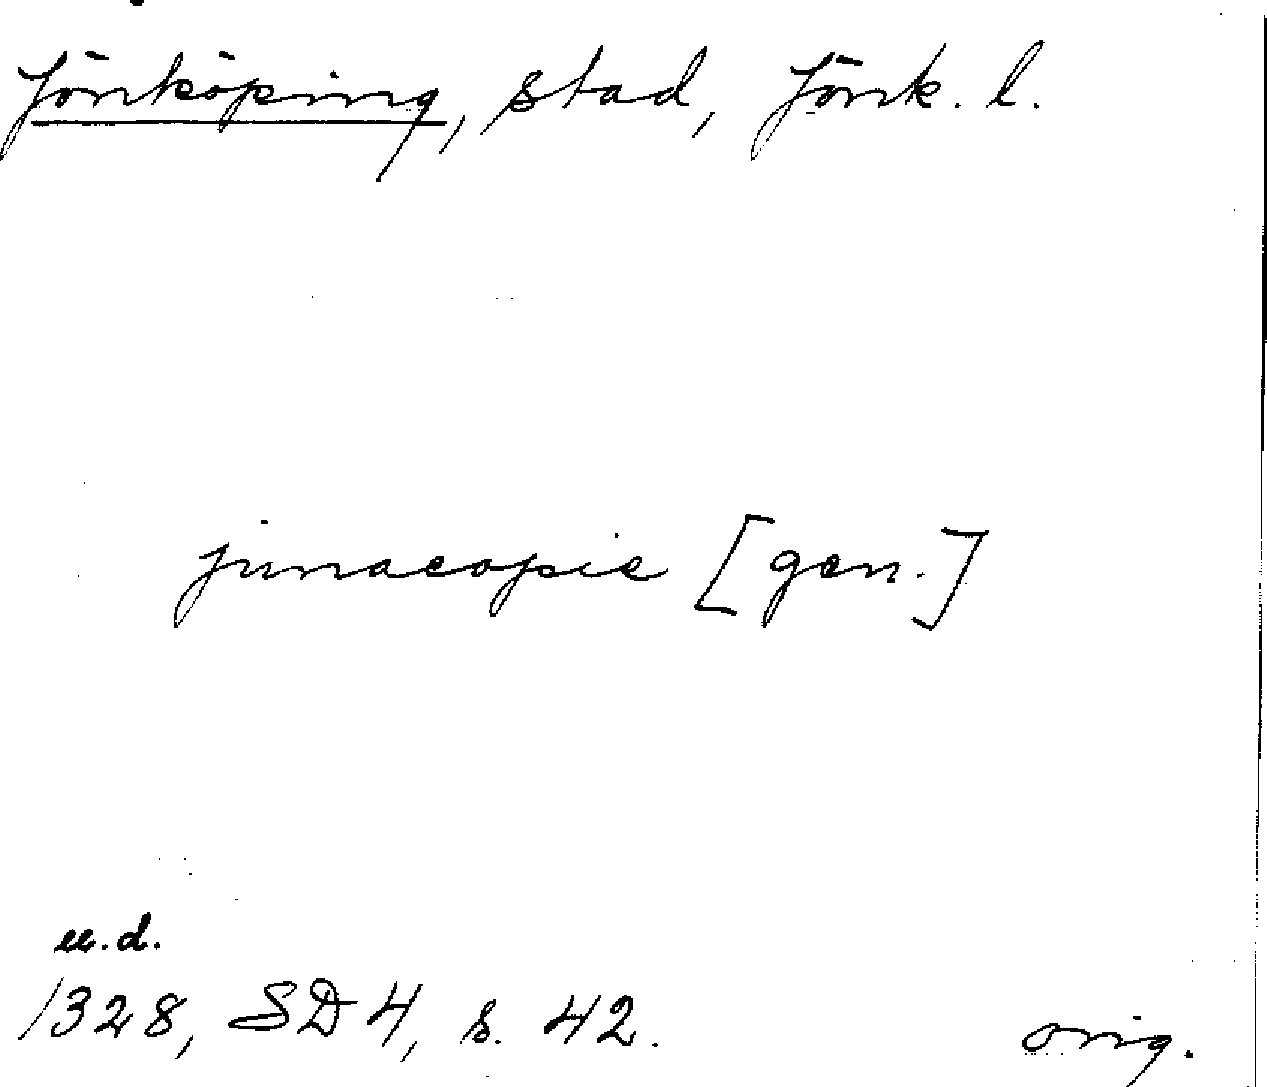 Jönköping, stad, Jönk. l.
junacopie [gen.]
u.d.
1328, SD 4, s. 42.
orig.